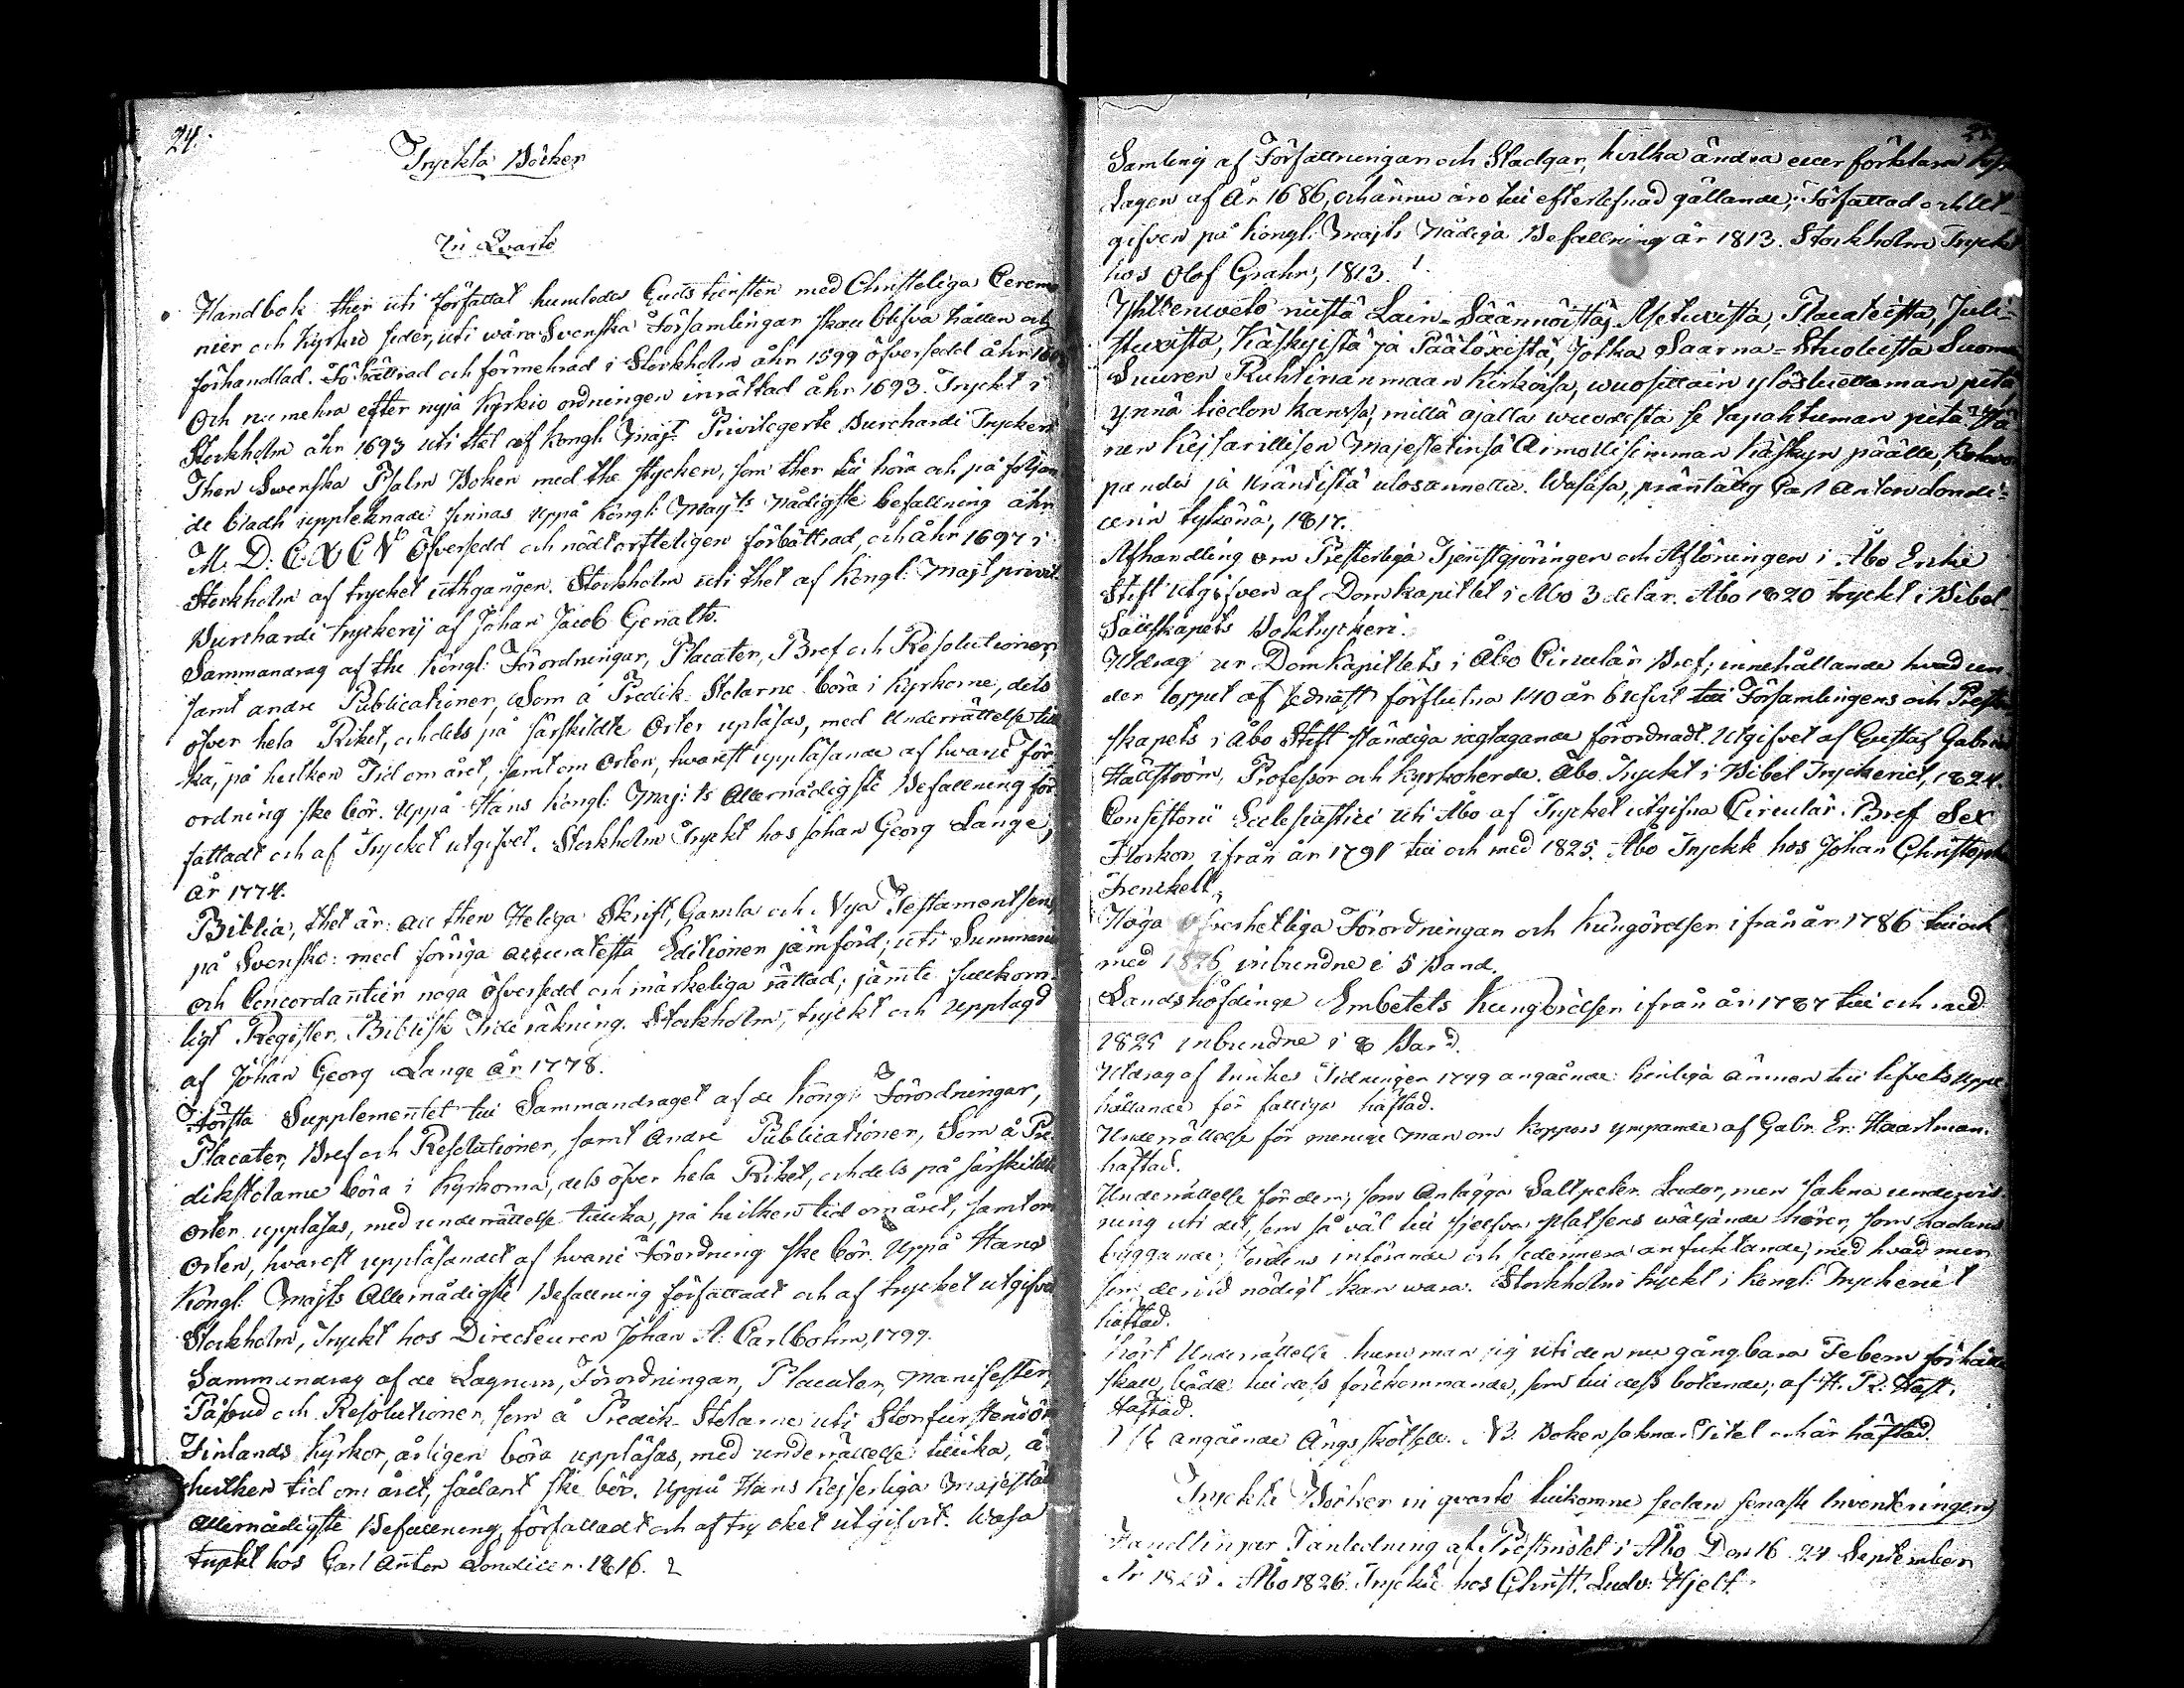 24.
Tryckta Böcker
In Qvarto
Handbok ther uti författat huruledes Gudstiensten med Christeliga Ceremo
nier och Kyrkio seder, uti wåra Svenska Församlingar skall blifva hållen och
förhandlad. Förbättrad och förmehrad i Stockholm åhr 1599 öfversedd åhr 1608
Och nu mehra efter nyja Kyrkio ordningen inrättad åhr 1693. Tryckt i
Stockholm åhr 1693 uti thet af Kongl. Majt. Privilegerte Burchardi Tryckeri
Then Swenska Psalm Boken med the stycken, som ther till höra och på följan
de bladh upteknade finnas uppå Kongl: Majts nådigste befallning åhr
M. D: C. X C V Öfversedd och nödtorfteligen förbättrad, och åhr 1697 i
Stockholm af trycket uthgången. Stockholm uti thet af Kongl. Majt privil.
Burchardi tryckerij af Johan Jacob Genath.
Sammandrag af the Kongl: Förordningar, Placater, Bref och Resolutioner,
samt andre Publicationer, Som å Predik-Stolarne böra i Kyrkorne, dels
öfver hela Riket, och dels på särskildte Orter upläsas, med Underrättelse till
ka, på hvilken Tid om året, samt om Orten, hvarest uppläsande af hvarje För
ordning ske bör. Uppå Hans Kongl: Maj:ts Allernådigste Befallning för
fattadt och af Trycket utgifvet. Stockholm Tryckt hos Johan Georg Lange,
År 1774.
Biblia, thet är: All then Heliga Skrift, Gamla och Nya Testamentsens
på Svensko: med förriga accuratesta Editionen jämförd; uti Summarie
och Concordantier noga öfversedd och märkeliga rättad; jämte fullkom-
ligt Register, Biblisk Tideräkning. Stockholm, tryckt och Upplagd
af Johan Georg Lange År 1778.
Första Supplementet till Sammandraget af de Kongl: Förordningar,
Placater, Bref och Resolutioner, samt Andre Publicationer, Som å Pre-
dikstolarne böra i Kyrkorna, dels öfver hela Riket, och dels på särskildte
orter uppläsas, med underrättelse tillika, på hvilken tid om året, samt om
Orten, hvarest uppläsandet af hvarje Förordning ske bör. Uppå Hans
Kongl: Majts Allernådigste Befallning författadt och af trycket utgifvet
Stockholm, Tryckt hos Directeuren Johan A: Carlbohm, 1799.
Sammandrag af de Lagrum, Förordningar, Placater, Manifester,
Påbud och Resolutioner, som å Predik-Stolarne uti Storfurstendöm
Finlands Kyrkor, årligen böra uppläsas, med underrättelse tillika, å
hvilken tid om året, sådant ske bör. Uppå Hans Kejserliga Majestäts
allernådigste Befallning, författadt och af trycket utgifvit. Wasa
tryckt hos Carl Anton Londicer. 1816. 2
Samling af Författningar och Stadgar, hvilka ändra eller förklara Kyr
Lagen af År 1686, och ännu äro till efterlefnad gällande; Författad och Ut-
gifven på Kongl: Majts Nådiga Befallning år 1813. Stockholm Tryckt
hos Olof Grahn, 1813. 1.
Yhteenweto niistä Lain-Säännöistä, Asetuxista, Placateista, Juli-
stuxista, Käskyistä ja Päätöxistä, jotka Saarna-Stuoleista Suomen
Suuren Ruhtinanmaan Kirkoisa, wuosittain ylösluettaman pitä
ynnä tiedon kanssa, millä ajalla wuodesta se tapahtuman pitä. Hä
nen Kejsarillisen Majestetinsä Armollisimman Käskyn päälle, Kokoon
pandu ja kränistä ulosannettu. Wasasa, präntätty Carl Anton Londi-
cerin tykönä, 1817.
Afhandling om Presterliga Tjenstgjöringen och Aflöningen i Åbo Erke
Stift utgifven af Domkapitlet i Åbo 3 delar. Åbo 1820 tryckt i Bibel-
Sällskapets Boktryckeri.
Utdrag ur Domkapitlets i Åbo Circulär Bref; innehållande hvad un
der loppet af sednast förflutna 140 år blifvit till Församlingens och Prester
skapets i Åbo Stift ständiga iagtagande förordnadt. Utgifvet af Gustaf Gabriel
Hällström, Professor och Kyrkoherde. Åbo. Tryckt i Bibel Tryckeriet, 1824.
Consistorii Ecclesiastici uti Åbo af Trycket utgifna Circulär. Bref Sex
Flockor, ifrån år 1791 till och med 1825. Åbo Tryckt hos Johan Christoph
Frenckell.
Höga Öfverhetliga Förordningar och Kungörelser ifrån år 1786 till och
med 1826, inbundne i 5 Band.
Landshöfdinge Embetets Kungörelser ifrån år 1787 till och med
1825 inbundne i 8 Band.
Utdrag af Inrikes Tidningen 1799 angående tienliga ämnen till lifvets Uppe
hållande för fattiga häftad.
Underrättelse för menige Man om koppors ympande af Gabr. Er: Haartman.
häftad.
Underrättelse för dem, som Anlägga Saltpeter Lador, men sakna undervis-
ning uti det, som så väl till sjelfva platsens wäljande hörer, som Ladans
byggande, Jordens införande och sedermera anfuktande, med hvad mer
som dervid nödigt kan wara. Stockholm tryckt i Kongl: Tryckeriet
häftad.
Kort Underrättelse huru man sig uti den nu gångbara Febern förhålla
skall, både till dess förekommande, som till dess botande; af H. P: Hast.
Häftad.
angående Ängsskötsell. NB. Boken saknar Titel och är häftad.
Tryckte Böcker in qvarto tillkomne sedan senaste Inventeringen
Handlingar I anledning af Prestmötet i Åbo Den 16 24 September
År 1825. Åbo 1826. Tryckt hos Christ. Ludv: Hjelt.